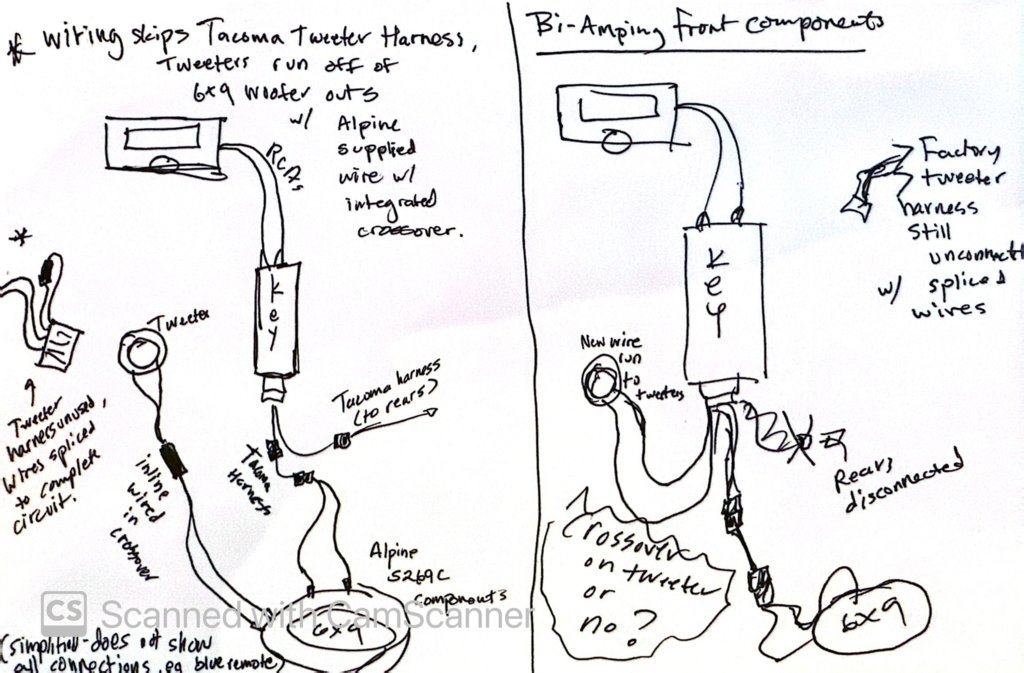 * wiring skips Tacoma Tweeter Harness,
Tweeters run off of
6x9 woofer outs
w/ Alpine
supplied
wire w/
integrated
crossover.
RCA's
key
*
Tweeter
Tweeter
harness unused,
wires spliced
to complete
circuit.
inline
wired
in
crossover
Tacoma harness
(to rears?)
Tacoma
Harness
Alpine
S269C
components
6x9
(simplified - does not show
all connections, eg blue remote)
Bi-Amping front components
key
Factory
tweeter
harness
still
unconnect
w/ spliced
wires
New wire
run
to
tweeters
Rears
disconnected
Crossover
on tweeter
or
no?
6x9
CS Scanned with CamScanner